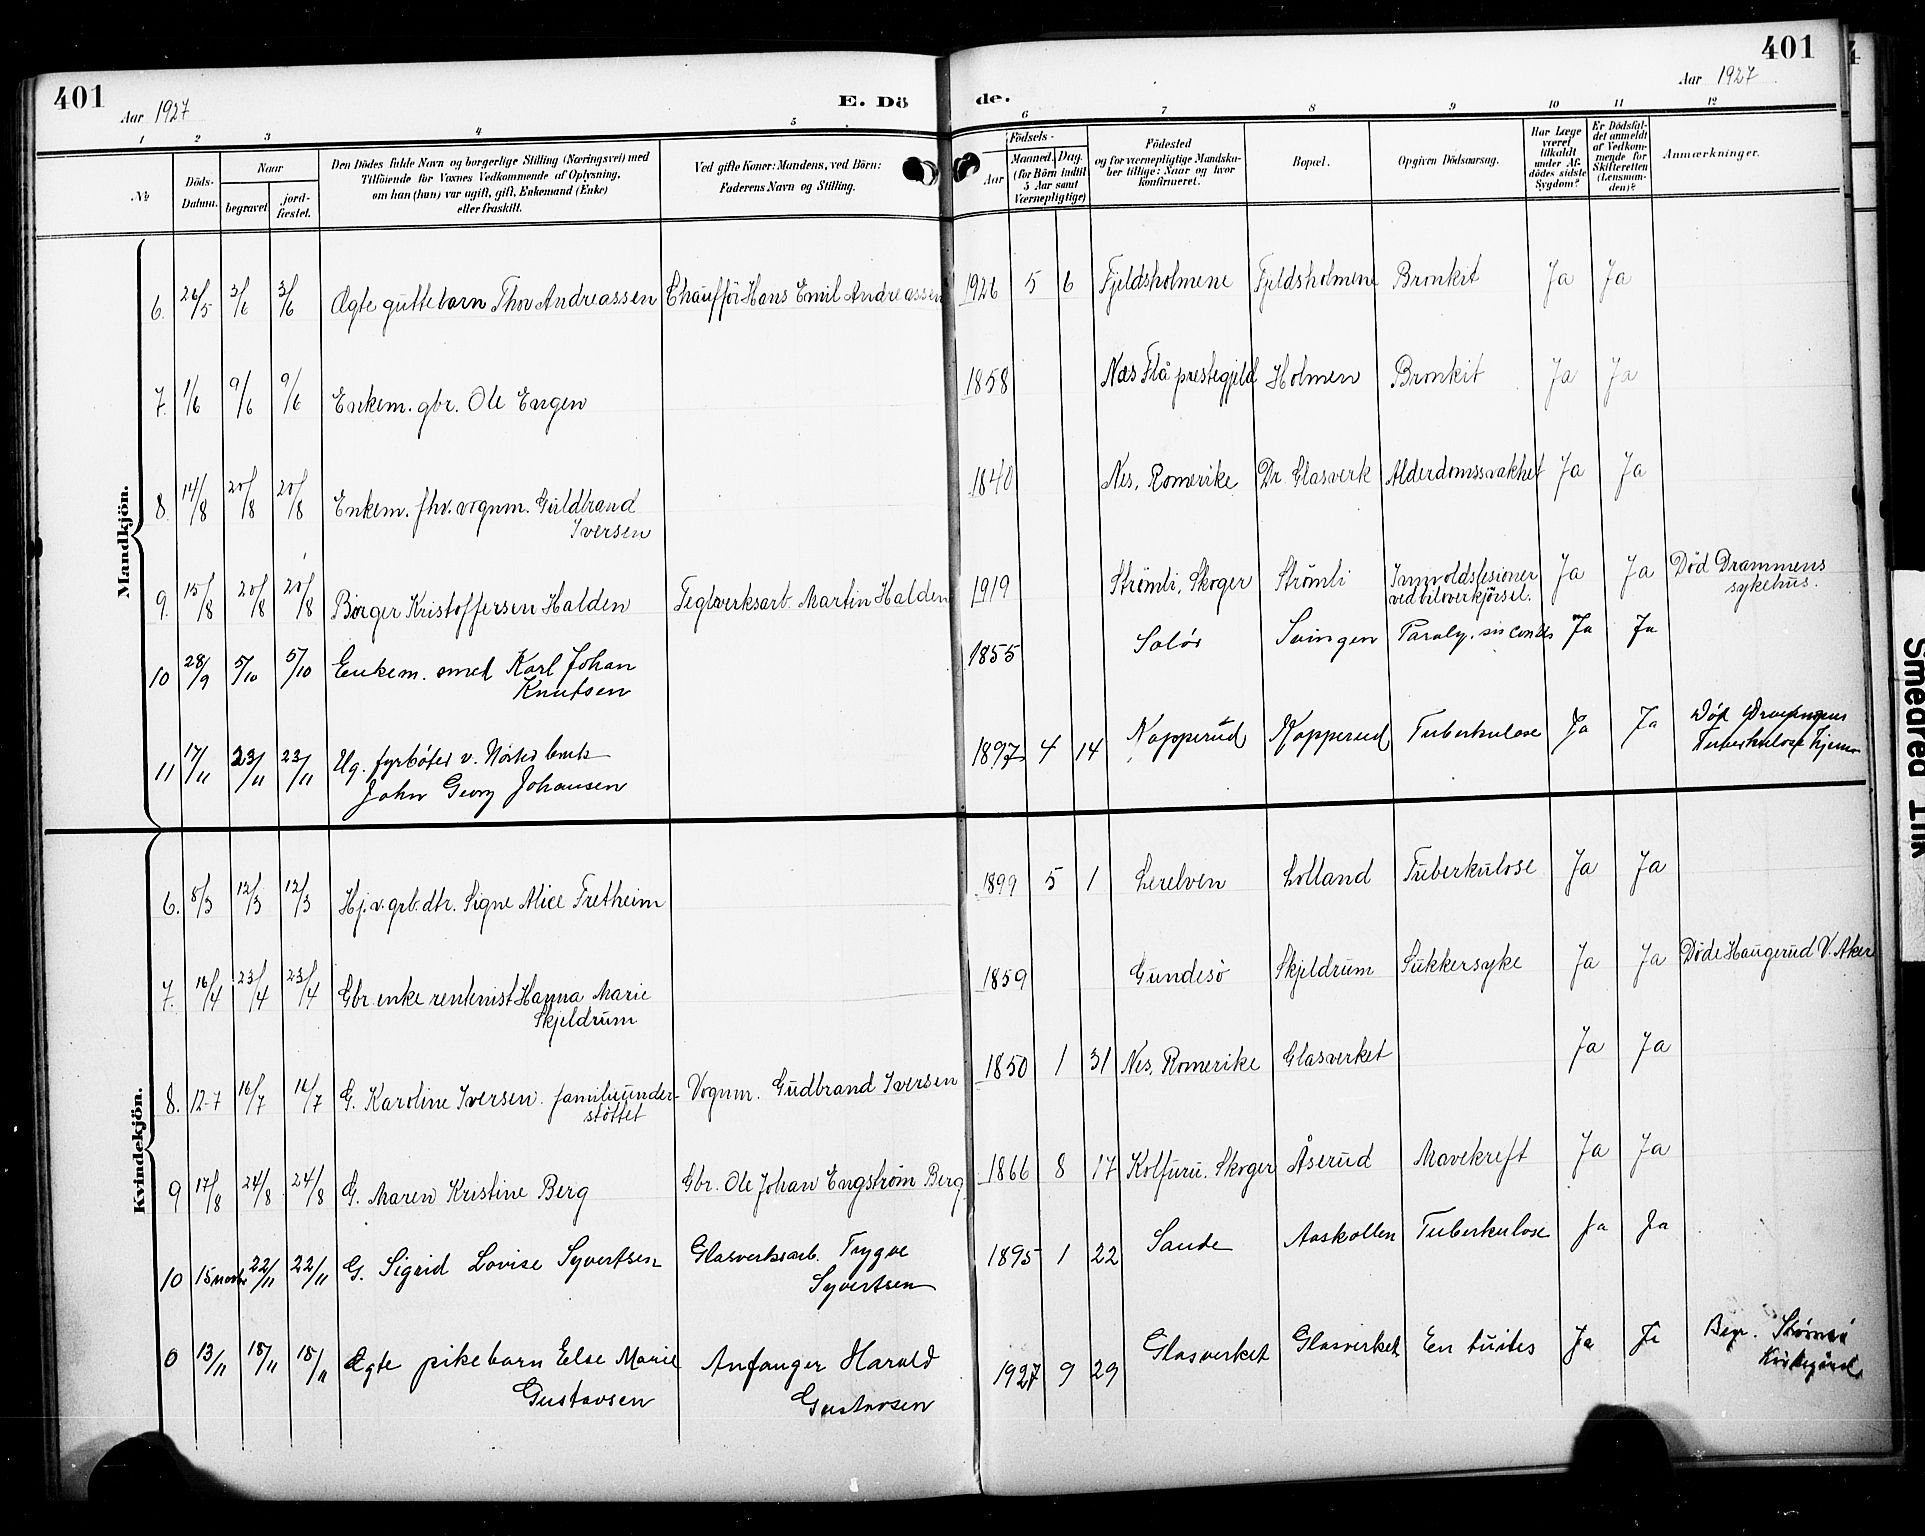 401
Aar 1927
E. Dö
de.
Aar 1927
401
1 2 3 4 5
6 7 8 9 10 11 12
№
Döds-
Datum.
Naar
begravet.
jord-
fæstet.
Den Dödes fulde Navn og borgerlige Stilling (Næringsvei) med
Tilföiende for Voxnes Vedkommende af Oplysning,
om han (hun) var ugift, gift, Enkemand (Enke)
eller fraskilt.
Ved gifte Koner: Mandens, ved Börn:
Faderens Navn og Stilling.
Födsels-
Aar
Maaned. Dag.
(for Börn indtil
5 Aar samt
Værnepligtige)
Födested
og for værnepligtige Mandsku-
ber tillige: Naar og hvor
konfirmeret.
Bopæl.
Opgiven Dödsaarsag.
Har Læge
været
tilkaldt
under Af-
dödes sidste
Sygdom?
Er Dödsfal-
det anmeldt
af Vedkom-
mende for
Skifteretten
(Lensman-
den)?
Anmærkninger.
Mandkjön.
6. 26/5 3/6 3/6 Ægte guttebarn Thor Andreassen Chauffør Hans Emil Andreassen 1926 5 6 Fjeldsholmene Fjeldsholmene Bronkit Ja Ja
7. 1/6 9/6 9/6 Enkem. gbr. Ole Engen 1858 Næs Flå prestegjeld Holmen Bronkit Ja Ja
8. 14/8 20/8 20/8 Enkem. fhv. vognm. Guldbrand
Iversen 1840 Nes, Romerike Dr. Glasverk Alderdomssvakhet Ja Ja
9. 15/8 20/8 20/8 Børger Kristoffersen Halden Teglverksarb. Martin Halden 1919 Strömli, Skoger Strömli Innvoldslesioner
ved biloverkjørsel. Ja Ja Død Drammens
sykehus.
10 28/9 5/10 5/10 Enkem. smed Karl Johan
Knutsen 1855 Solør Svingen Ja Ja
11 17/11 23/11 23/11 Ug. fyrbøter v.
John Georg Johansen 1897 4 14 Kopperud Kopperud Tuberkulose Ja Ja Død Drammens
Tuberkulosehjem
Kvindekjön.
6. 8/3 12/3 12/3 Hj.v. grb. dtr. Signe Alice Fretheim 1899 5 1 Lerelven Lolland Tuberkulose Ja Ja
7. 16/4 23/4 23/4 Gbr. enke rentenist Hanna Marie
Skjeldrum 1859 Gundesø Skjeldrum Sukkersyke Ja Ja Døde Haugerud V. Aker
8. 12-7 16/7 16/7 G. Karoline Iversen familieunder-
støttet Vognm. Gudbrand Iversen 1850 1 31 Nes, Romerike Glasverket Ja Ja
9 17/8 24/8 24/8 G. Maren Kristine Berg Gbr. Ole Johan Engstrøm Berg 1866 8 17 Kolfuru, Skoger Åserud Mavekreft Ja Ja
10 15 novbr 22/11 22/11 G. Sigrid Lovise Syvertsen Glasverksarb. Trygve
Syvertsen 1895 1 22 Sande Aaskollen Tuberkulose Ja Ja
0 13/11 18/11 18/11 Ægte pikebarn Else Marie
Gustavsen Anfanger Harald
Gustavsen 1927 9 29 Glasverket Glasverket Ja Ja Begr. Strømsø
Kirkegård
Smedrud Trik